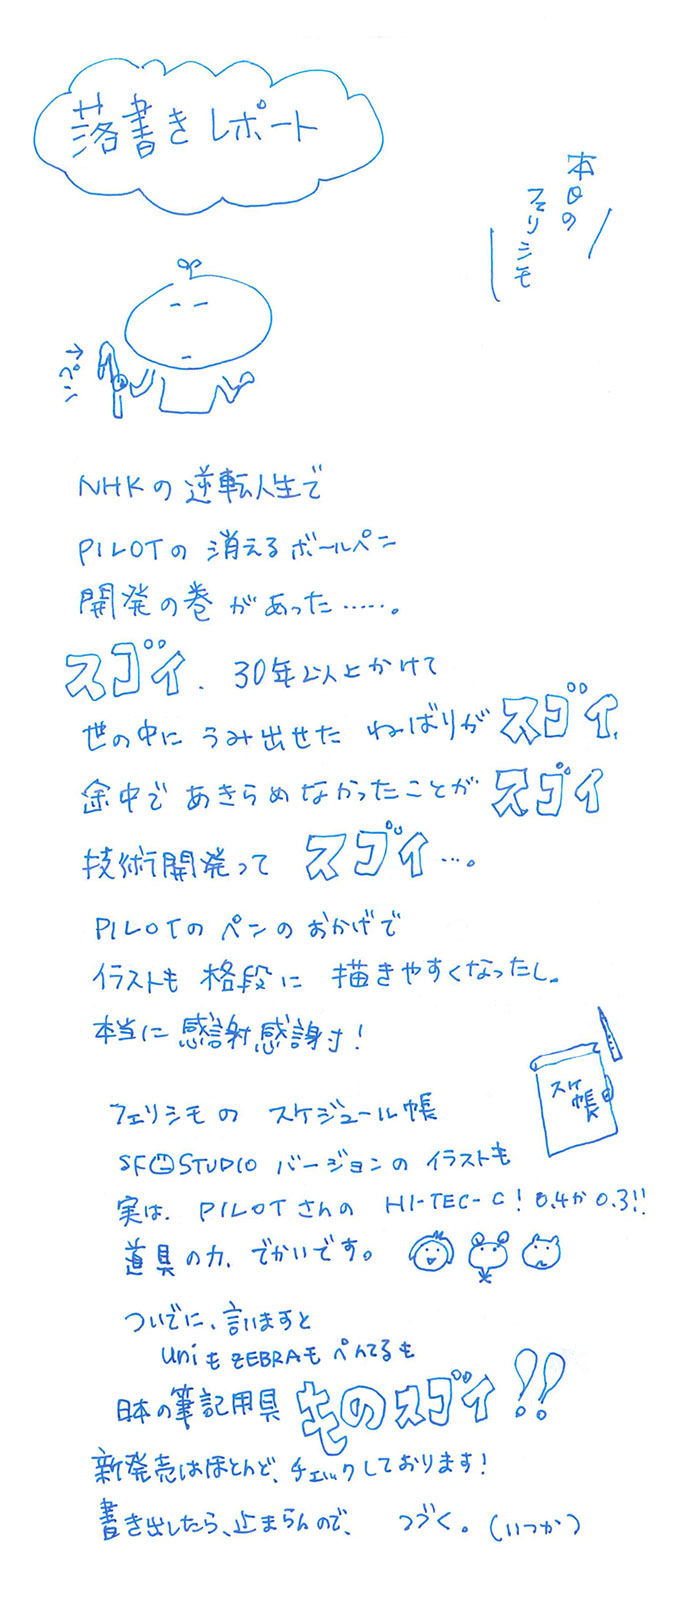 落書きレポート
本日の
フェリシモ
→ペン
NHKの逆転人生で
PILOTの 消えるボールペン
開発の巻があった……。
スゴイ、30年以上かけて
世の中に うみ出せた ねばりが スゴイ、
途中で あきらめなかったことが スゴイ
技術開発って スゴイ…。
PILOTの ペンの おかげで
イラストも 格段に 描きやすくなったし。
本当に 感謝感謝!
スケ
帳
フェリシモの スケジュール帳
SF STUDIO バージョンの イラストも
実は、PILOTさんの HI-TEC-C! 0.4か0.3!!
道具の力、でかいです。
ついでに、言いますと
uniも ZEBRAも ぺんてるも
日本の筆記用具 ものスゴイ!!
新発売はほとんど、チェックしております!
書き出したら、止まらんので、 つづく。(いつか)